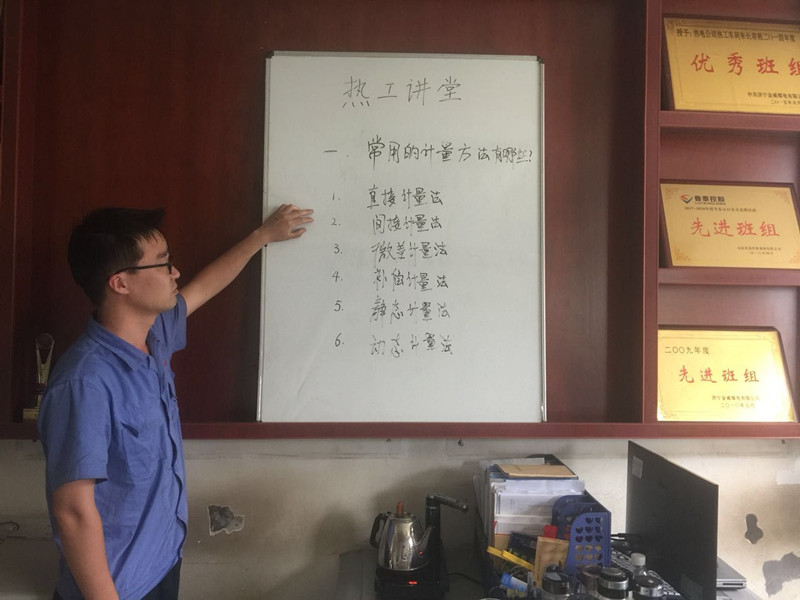 热工讲堂
一. 常用的计量方法有哪些?
1. 直接计量法
2. 间接计量法
3. 微差计量法
4. 补偿计量法
5. 静态计量法
6. 动态计量法
优秀班组
鲁泰控股
先进班组
二〇〇九年度
先进班组